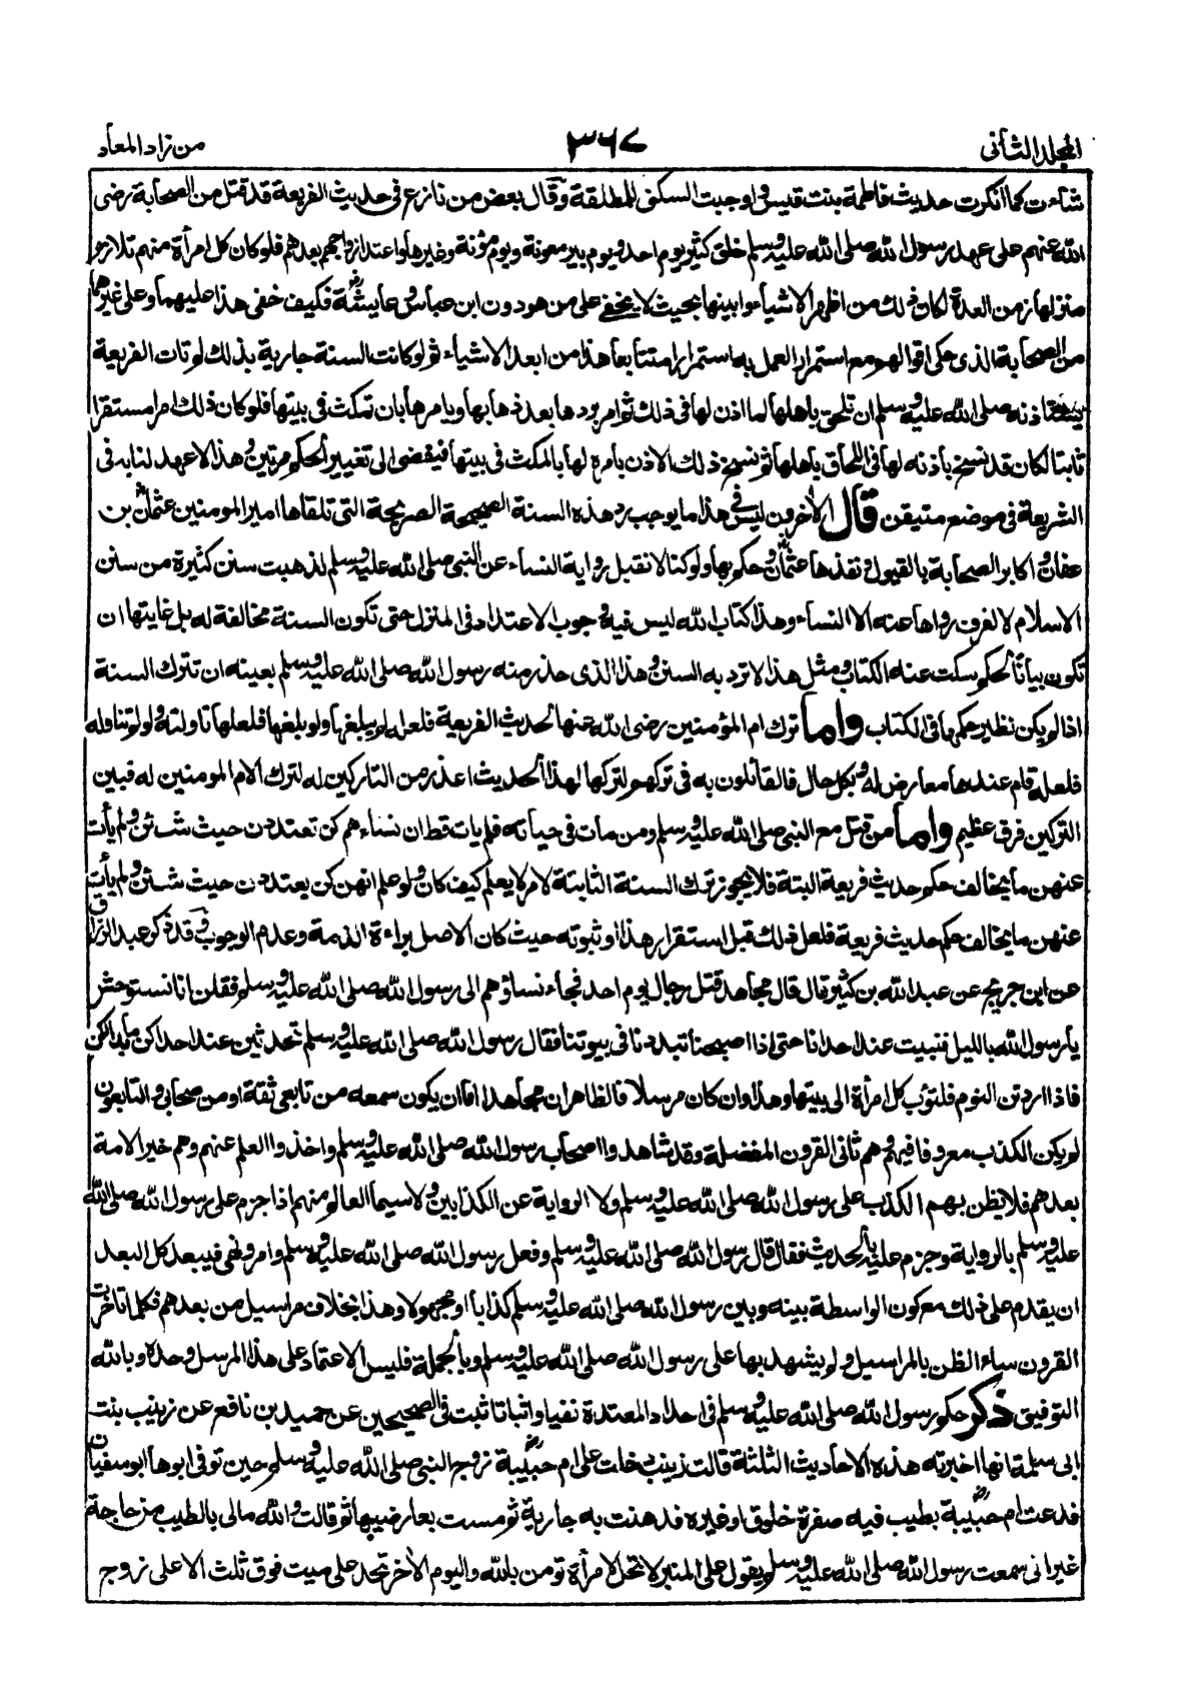 المجلد الثاني
٣٦٧
من زاد المعاد
شاءت كما أنكرت حديث فاطمة بنت قيس وأوجبت السكنى للمطلقة وقال بعض من نازع في حديث الفريعة قد قتل من الصحابة رضى
الله عنهم على عهد رسول الله صلى الله عليه وسلم خلق كثير يوم احد ويوم بير معونة ويوم مؤتة وغيرها واعتد ازواجهم بعدهم فلو كان كل امرأة منهم تلازم
منزلها زمن العدة لكان ذلك من اظهر الاشياء وابينها بحيث لا يخفى على من هو دون ابن عباس وعايشة فكيف خفى هذا عليهما وعلى غيرهما
من الصحابة الذى حكى اقوالهم مع استمرار العمل به استمرارا متتابعا هذا من ابعد الاشياء ثم لو كانت السنة جارية بذلك لم تات الفريعة
تستأذنه صلى الله عليه وسلم ان تلحق باهلها لما اذن لها في ذلك ثم امر بردها بعد ذهابها ويامرها بان تمكث في بيتها فلو كان ذلك امرا مستقرا
ثابتا لكان قد نسخ باذنه لها في اللحاق باهلها ثم نسخ ذلك الاذن بامره لها بالمكث في بيتها فيفضى الى تغيير الحكم مرتين وهذا لا عهد لنا به في
الشريعة في موضع متيقن قال الأخرون ليس في هذا ما يوجب رد هذه السنة الصحيحة الصريحة التي تلقاها امير المومنين عثمان بن
عفان واكابر الصحابة بالقبول ونفذها عثمان وحكم بها ولو كنا لا نقبل رواية النساء عن النبي صلى الله عليه وسلم لذهبت سنن كثيرة من سنن
الاسلام لا نعرف رواها عنه الا النساء وهذا كتاب الله ليس فيه وجوب الاعتداد في المنزل حتى تكون السنة مخالفة له بل غايتها ان
تكون بيانًا لحكم سكت عنه الكتاب ومثل هذا لا ترد به السنن وهذا الذى حذر منه رسول الله صلى الله عليه وسلم بعينه ان تترك السنة
اذا لم يكن نظير حكمها في الكتاب واما ترك ام المؤمنين رضى الله عنها لحديث الفريعة فلعله لم يبلغها ولو بلغها فلعلها تاولته ولو لم تتاوله
فلعله قام عندها معارض له وبكل حال فالقائلون به في تركهم لتركها لهذا الحديث اعذر من التاركين له لترك ام المومنين له فبين
التركين فرق عظيم واما من قتل مع النبي صلى الله عليه وسلم ومن مات في حياته فلم يات قط ان نساءهم كن تعتددن حيث شئن ولم يأت
عنهن ما يخالف حكم حديث فريعة البتة فلا يجوز ترك السنة الثابتة لامر لا يعلم كيف كان ولو علم انهن كن يعتددن حيث شئن ولم يأت
عنهن ما يخالف حكم حديث فريعة فلعل ذلك قبل استقرار هذا وثبوته حيث كان الاصل براءة الذمة وعدم الوجوب وقد ذكر عبد الرزاق
عن ابن جريج عن عبد الله بن كثير قال قال مجاهد قتل رجال يوم احد فجاء نساؤهم الى رسول الله صلى الله عليه وسلم فقلن انا نستوحش
يا رسول الله بالليل فنبيت عند احدانا حتى اذا اصبحنا تبددنا في بيوتنا فقال رسول الله صلى الله عليه وسلم تحدثين عند احداكن ما بدا لكن
فاذا اردتن النوم فلتؤب كل امرأة الى بيتها وهذا وان كان مرسلا فالظاهر ان مجاهدا اما ان يكون سمعه من تابعي ثقة او من صحابي والتابعون
لم يكن الكذب معروفا فيهم وهم ثاني القرون المفضلة وقد شاهدوا اصحاب رسول الله صلى الله عليه وسلم واخذوا العلم عنهم وهم خير الامة
بعدهم فلا يظن بهم الكذب على رسول الله صلى الله عليه وسلم ولا الرواية عن الكذابين ولا سيما العالم منهم اذا جزم على رسول الله صلى الله
عليه وسلم بالرواية وجزم عليه بالحديث فقال قال رسول الله صلى الله عليه وسلم وفعل رسول الله صلى الله عليه وسلم وامر ونهى فيبعد كل البعد
ان يقدم على ذلك مع كون الواسطة بينه وبين رسول الله صلى الله عليه وسلم كذابا او مجهولا وهذا بخلاف مراسيل من بعدهم فكلما تاخرت
القرون ساء الظن بالمراسيل ولم يشهد بها على رسول الله صلى الله عليه وسلم وبالجملة فليس الاعتماد على هذا المرسل وحده وبالله
التوفيق ذكر حكم رسول الله صلى الله عليه وسلم في احداد المعتدة نفيا واثباتا ثبت في الصحيحين عن حميد بن نافع عن زينب بنت
ابى سلمة انها اخبرته هذه الاحاديث الثلثة قالت زينب دخلت على ام حبيبة زوج النبي صلى الله عليه وسلم حين توفى ابوها ابو سفيان
فدعت ام حبيبة بطيب فيه صفرة خلوق او غيره فدهنت به جارية ثم مست بعارضيها ثم قالت والله مالى بالطيب من حاجة
غير انى سمعت رسول الله صلى الله عليه وسلم يقول على المنبر لا تحل لامرأة تومن بالله واليوم الأخر تحد على ميت فوق ثلث الا على زوج